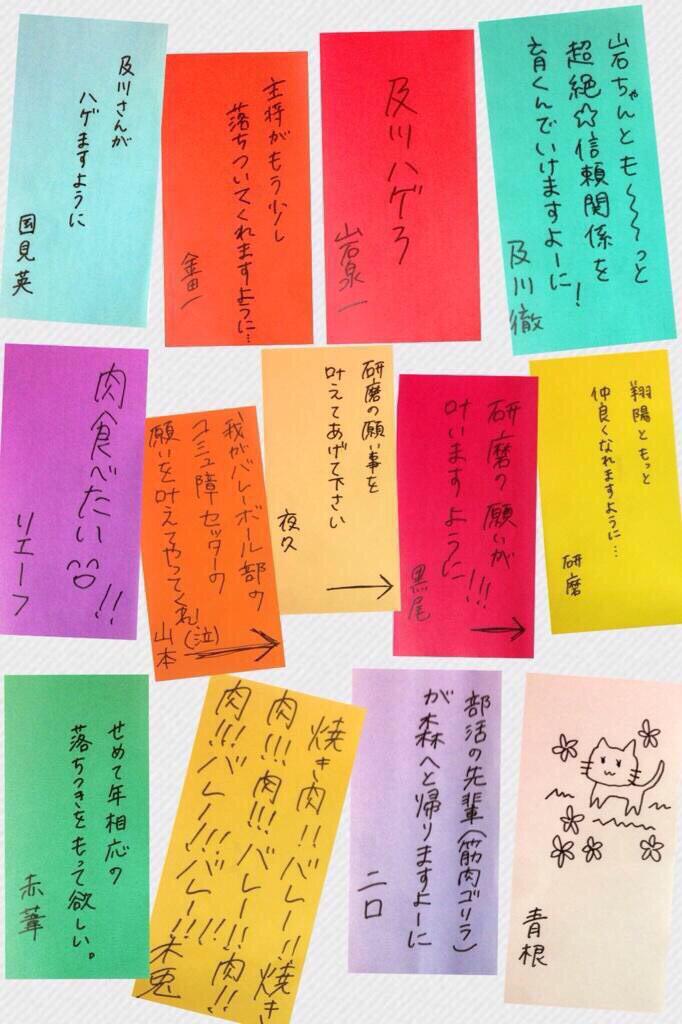 岩ちゃんとも〜〜〜っと
超絶☆信頼関係を
育くんでいけますよーに!
及川徹
及川ハゲろ
岩泉一
主将がもう少し
落ちついてくれますように…
金田一
及川さんが
ハゲますように
国見英
翔陽ともっと
仲良くなれますように…
研磨
研磨の願いが
叶いますように!!!
黒尾
→
研磨の願い事を
叶えてあげて下さい
夜久
→
我がバレーボール部の
コミュ障セッターの
願いを叶えてやってくれ(泣)
山本
→
肉食べたい!!
リエーフ
青根
部活の先輩(筋肉ゴリラ)
が森へと帰りますよーに
二口
焼き肉!!バレー!!焼き
肉!!!肉!!!バレー!!肉!!
肉!!!バレー!!!バレー!!!
木兎
せめて年相応の
落ちつきをもって欲しい。
赤葦